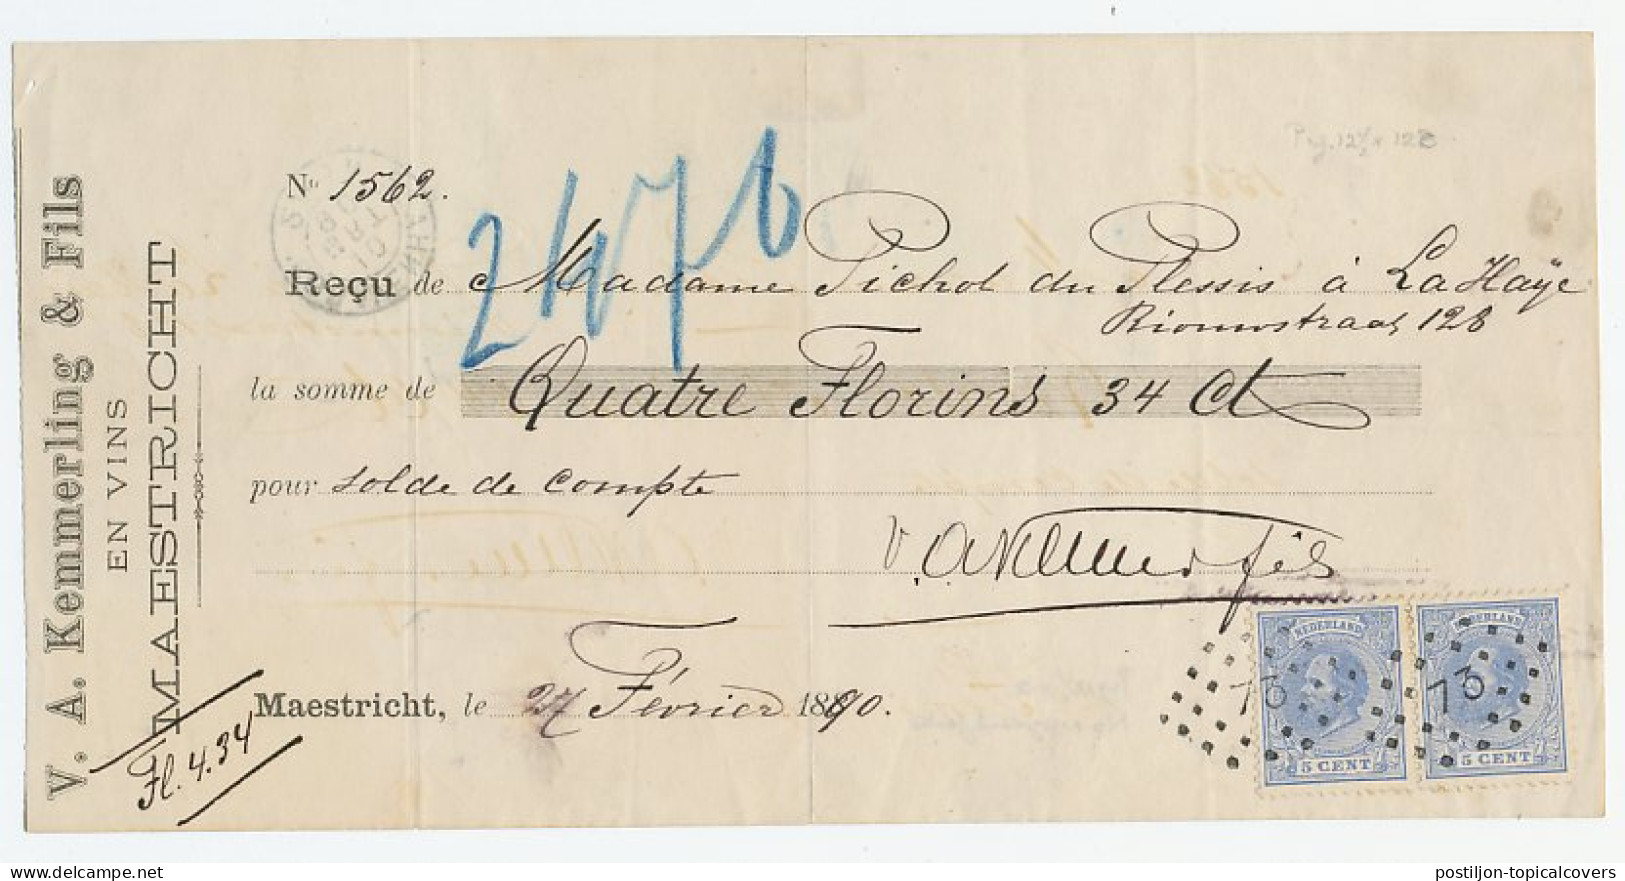 V. A. Kemmerling & Fils
EN VINS
MAESTRICHT
Fl. 4.34
Prg. 12½ x 12
No 1562.
2476
Reçu de Madame Pichot du Plessis à La Haÿe
Riouwstraat 128
la somme de Quatre Florins 34 Ct
pour solde de compte
V. A. Kemmerling fils
Maestricht, le 27 Février 1890.
NEDERLAND
5 CENT
73
NEDERLAND
5 CENT
73
postiljon-topicalcovers